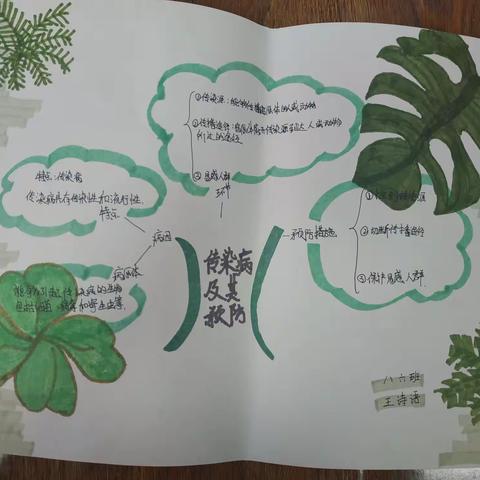 ①传染源：能够传播病原体的人或动物
②传播途径：病原体离开传染源到达人或动物
所经的途径
③易感人群
环节
特点：传染病
传染病具有传染性和流行性.
特点
病因
病原体
能够引起传染病的生物
包括细菌、病毒和寄生虫等.
传染病
及其
预防
预防措施
①控制传染源
②切断传播途径
③保护易感人群.
八六班
王诗语